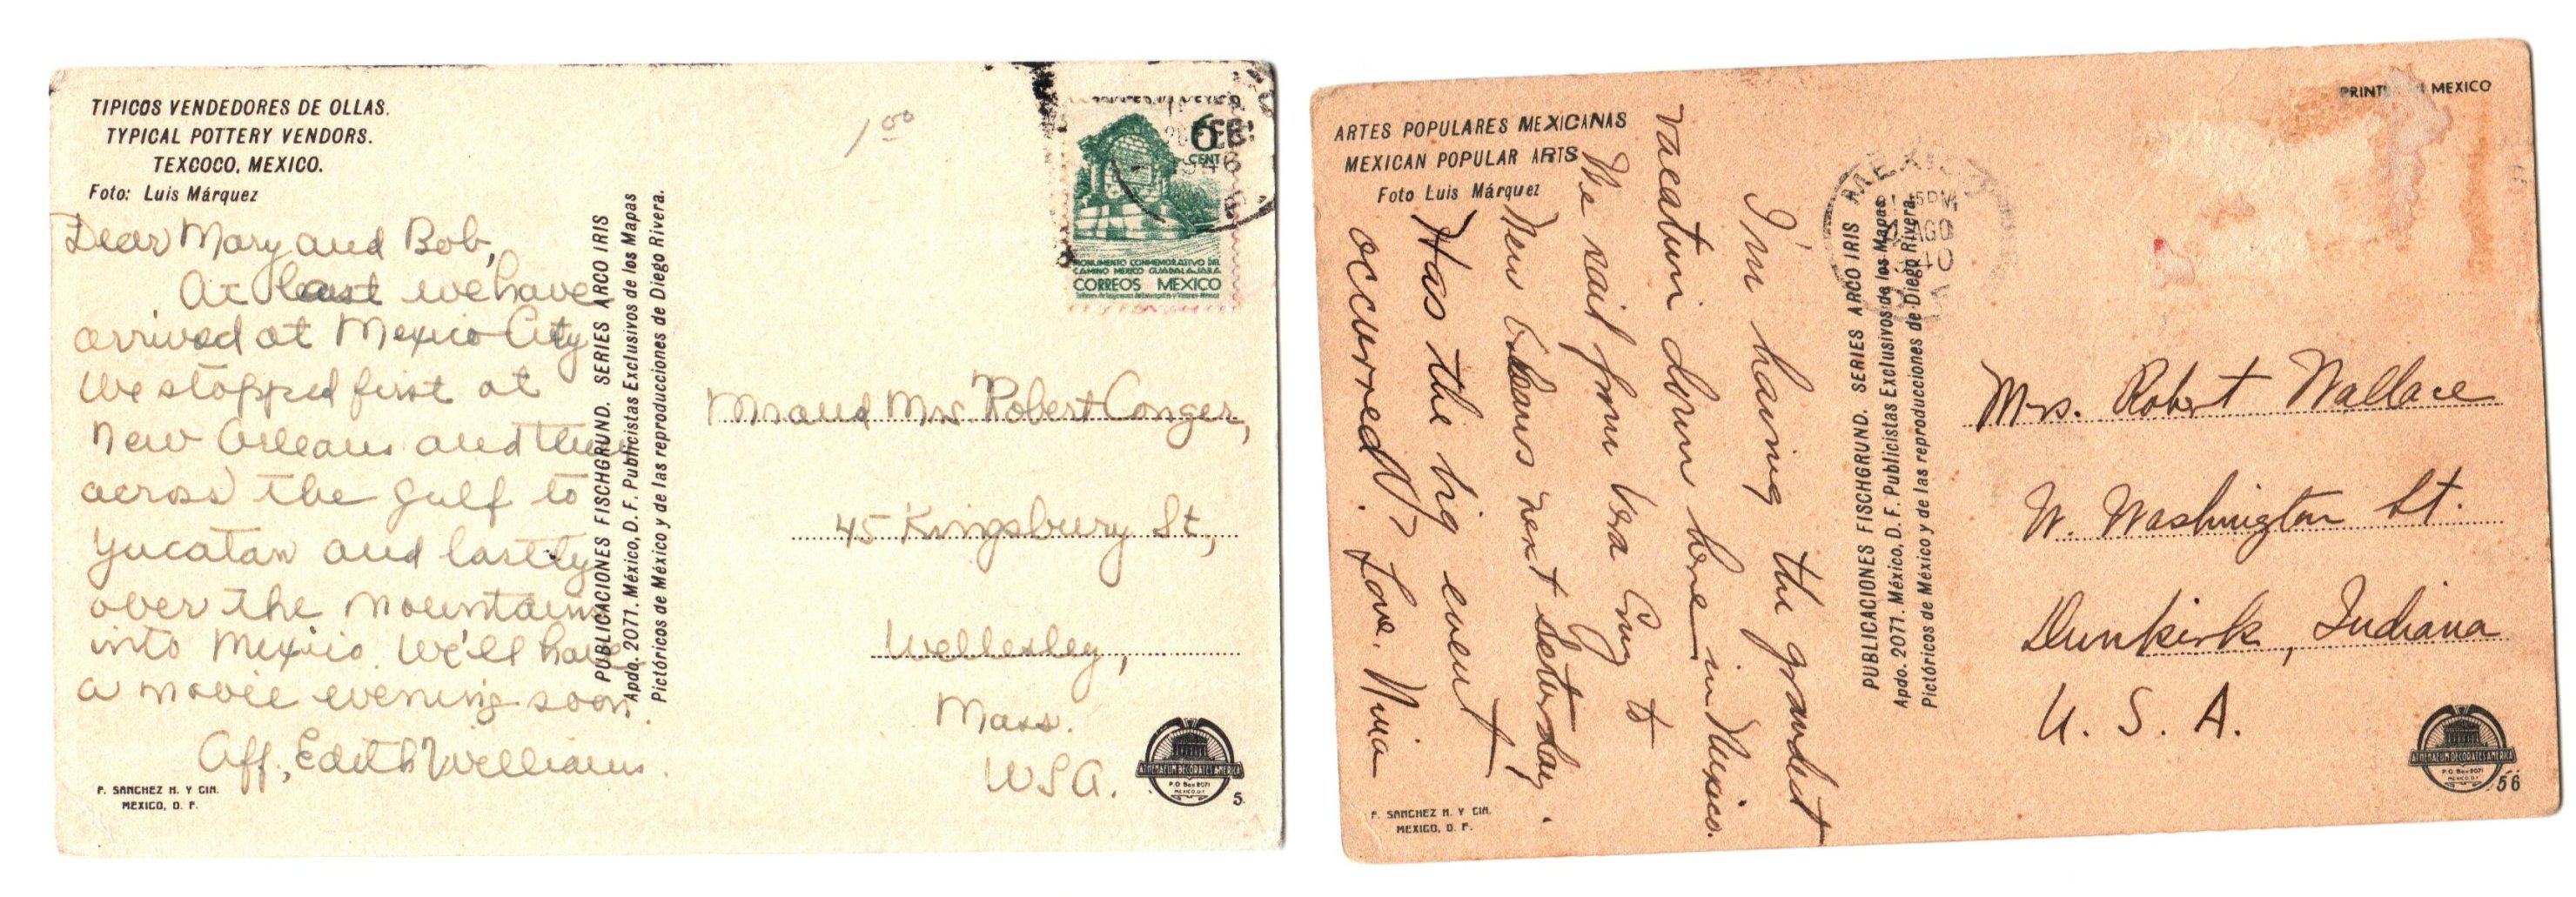 TIPICOS VENDEDORES DE OLLAS.
TYPICAL POTTERY VENDORS.
TEXCOCO, MEXICO.
Foto: Luis Márquez
Dear Mary and Bob,
At least we have
arrived at Mexico City
We stopped first at
New Orleans and then
across the gulf to
Yucatan and lastly
over the mountains
into Mexico. We'll have
a movie evening soon.
Aff., Edith Williams.
F. SANCHEZ H. Y CIA.
MEXICO, D. F.
PUBLICACIONES FISCHGRUND. SERIES ARCO IRIS
Apdo. 2071. México, D. F. Publicistas Exclusivos de los Mapas
Pictóricos de México y de las reproducciones de Diego Rivera.
1 00
6
CENT
946
MONUMENTO CONMEMORATIVO DEL
CAMINO MEXICO GUADALAJARA
CORREOS MEXICO
Mr and Mrs Robert Conger,
45 Kingsbury St,
Wellesley,
Mass.
USA.
ATHENAEUM DECORATES AMERICA
P.O. Box 2071
MEXICO, D.F.
5
ARTES POPULARES MEXICANAS
MEXICAN POPULAR ARTS
Foto Luis Márquez
I'm having the grandest
vacation down here in Mexico.
We sail from Vera Cruz to
New Orleans next Saturday.
Has the big event
occurred? Love. Nina
F. SANCHEZ H. Y CIA.
MEXICO, D. F.
PUBLICACIONES FISCHGRUND. SERIES ARCO IRIS
Apdo. 2071. México, D. F. Publicistas Exclusivos de los Mapas
Pictóricos de México y de las reproducciones de Diego Rivera.
AGO
PRINT MEXICO
Mrs. Robert Wallace
W. Washington St.
Dunkirk, Indiana
U. S. A.
ATHENAEUM DECORATES AMERICA
P.O. Box 2071
MEXICO, D.F.
56